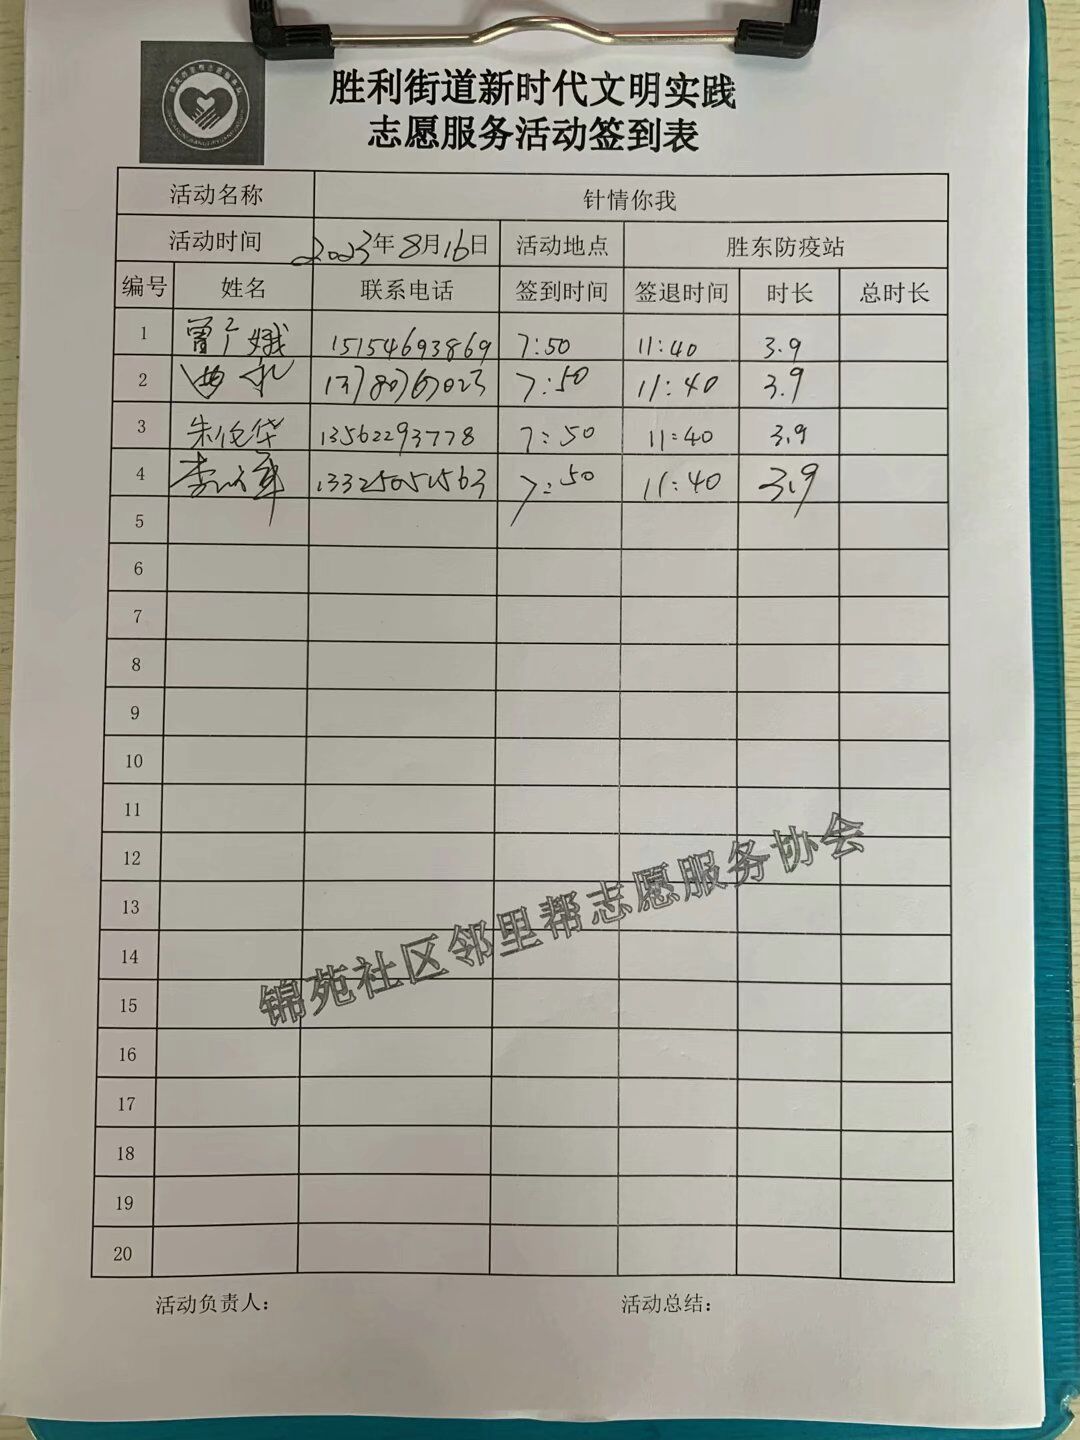 胜利街道新时代文明实践
志愿服务活动签到表
活动名称 针情你我
活动时间 2023年8月16日 活动地点 胜东防疫站
编号 姓名 联系电话 签到时间 签退时间 时长 总时长
1 曾广娥 15154693869 7:50 11:40 3.9
2 7:50 11:40 3.9
3 朱伦华 13562293778 7:50 11:40 3.9
4 13325051563 7:50 11:40 3.9
5
6
7
8
9
10
11
12
13
14
15
16
17
18
19
20
锦苑社区邻里帮志愿服务协会
活动负责人： 活动总结：